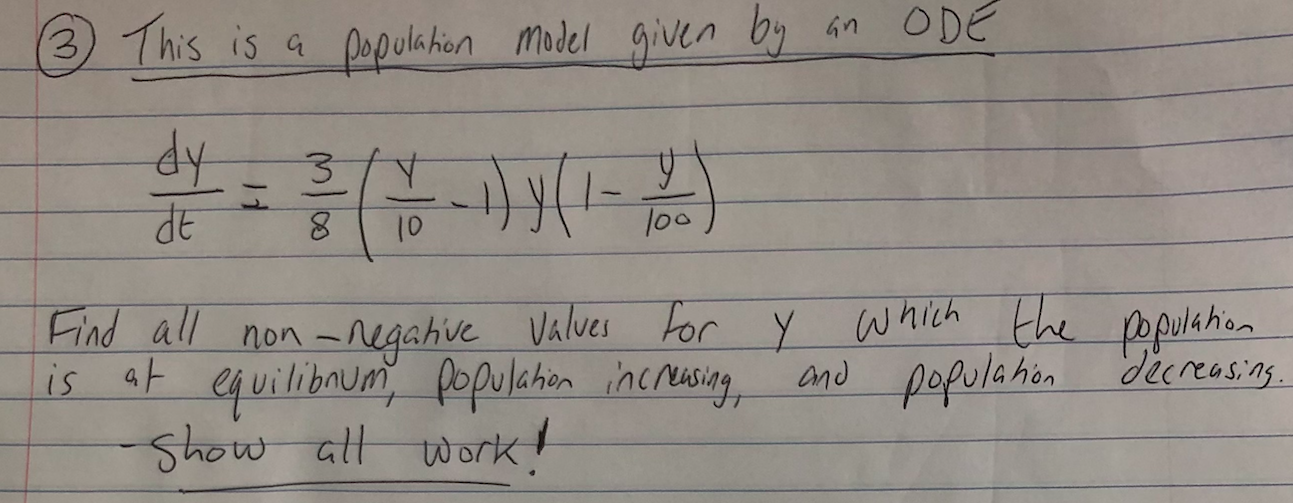 ③ This is a population model given by an ODE
dy/dt = 3/8 (y/10 - 1) y (1 - y/100)
Find all non-negative values for y which the population
is at equilibrium, population increasing, and population decreasing.
- Show all work!